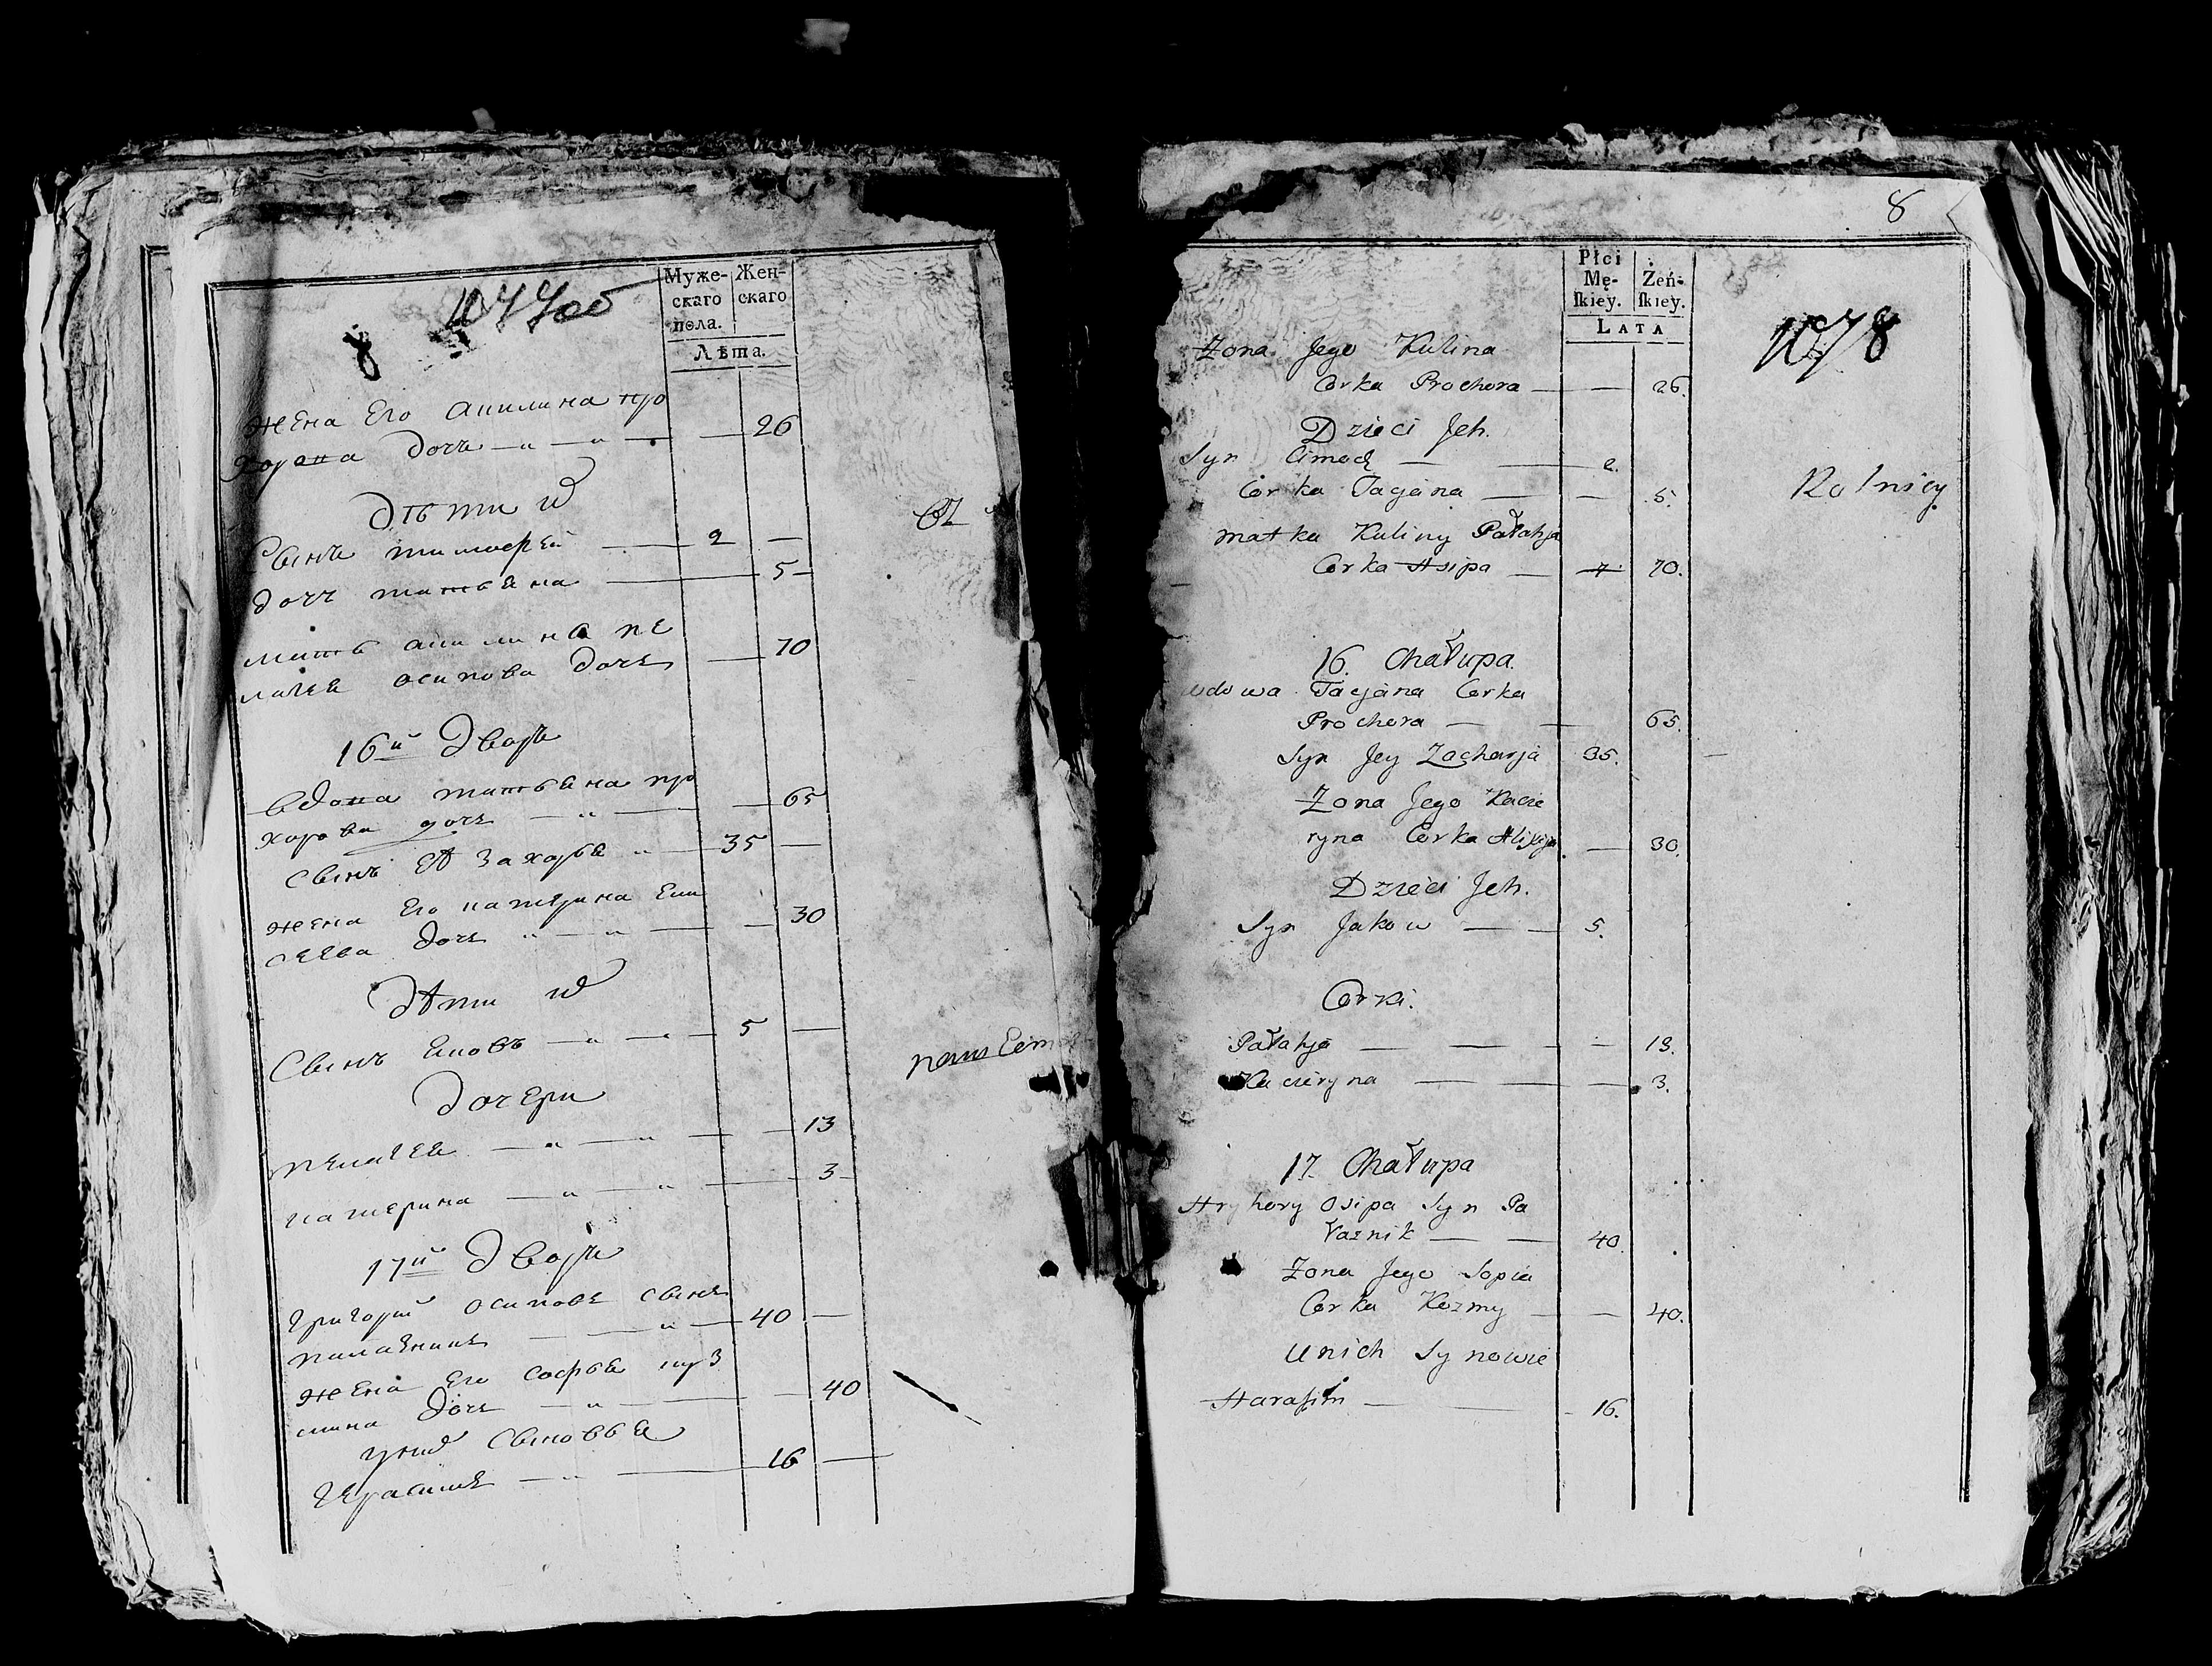 1077об
8
Муже-
скаго
пола.
Жен-
скаго
Лѣта.
жена Его акилина про
хорова дочь 26
Дѣти их
Сынъ тимофей 2
дочь татьяна 5
мать акилины пе
лагея осипова дочь 70
16й Дворъ
вдова татьяна про
хорова дочь 65
сынъ ея Захарья 35
жена Его катерина Ели
сеева дочь 30
дѣти их
Сынъ яковъ 5
Дочери
пелагея 13
катерина 3
17й Дворъ
григорий осиповъ сынъ
палазникъ 40
жена Его софья куз
мина дочь 40
у них сыновья
герасимъ 16
8
Płci
Mę-
skiey.
Żeń-
skiey.
LATA
1078
Żona Jego Kulina
Corka Prochora 26.
Dzieci Jch.
Syn Cimoch 2.
Corka Tacjana 5.
Rolnicy
matka Kuliny Pałahja
Corka Asipa 70.
16. Chałupa.
wdowa Tacjana Corka
Prochora 65.
Syn Jey Zacharja 35.
Żona Jego Kacie
ryna Corka Alisieja 30.
Dzieci Jch.
Syn Jakow 5.
Corki.
Pałahja 13.
Kacieryna 3.
17. Chałupa
Hryhory Osipa Syn Pa
łaznik 40.
Żona Jego Sopia
Corka Kozmy 40.
U nich Synowie
Harasim 16.